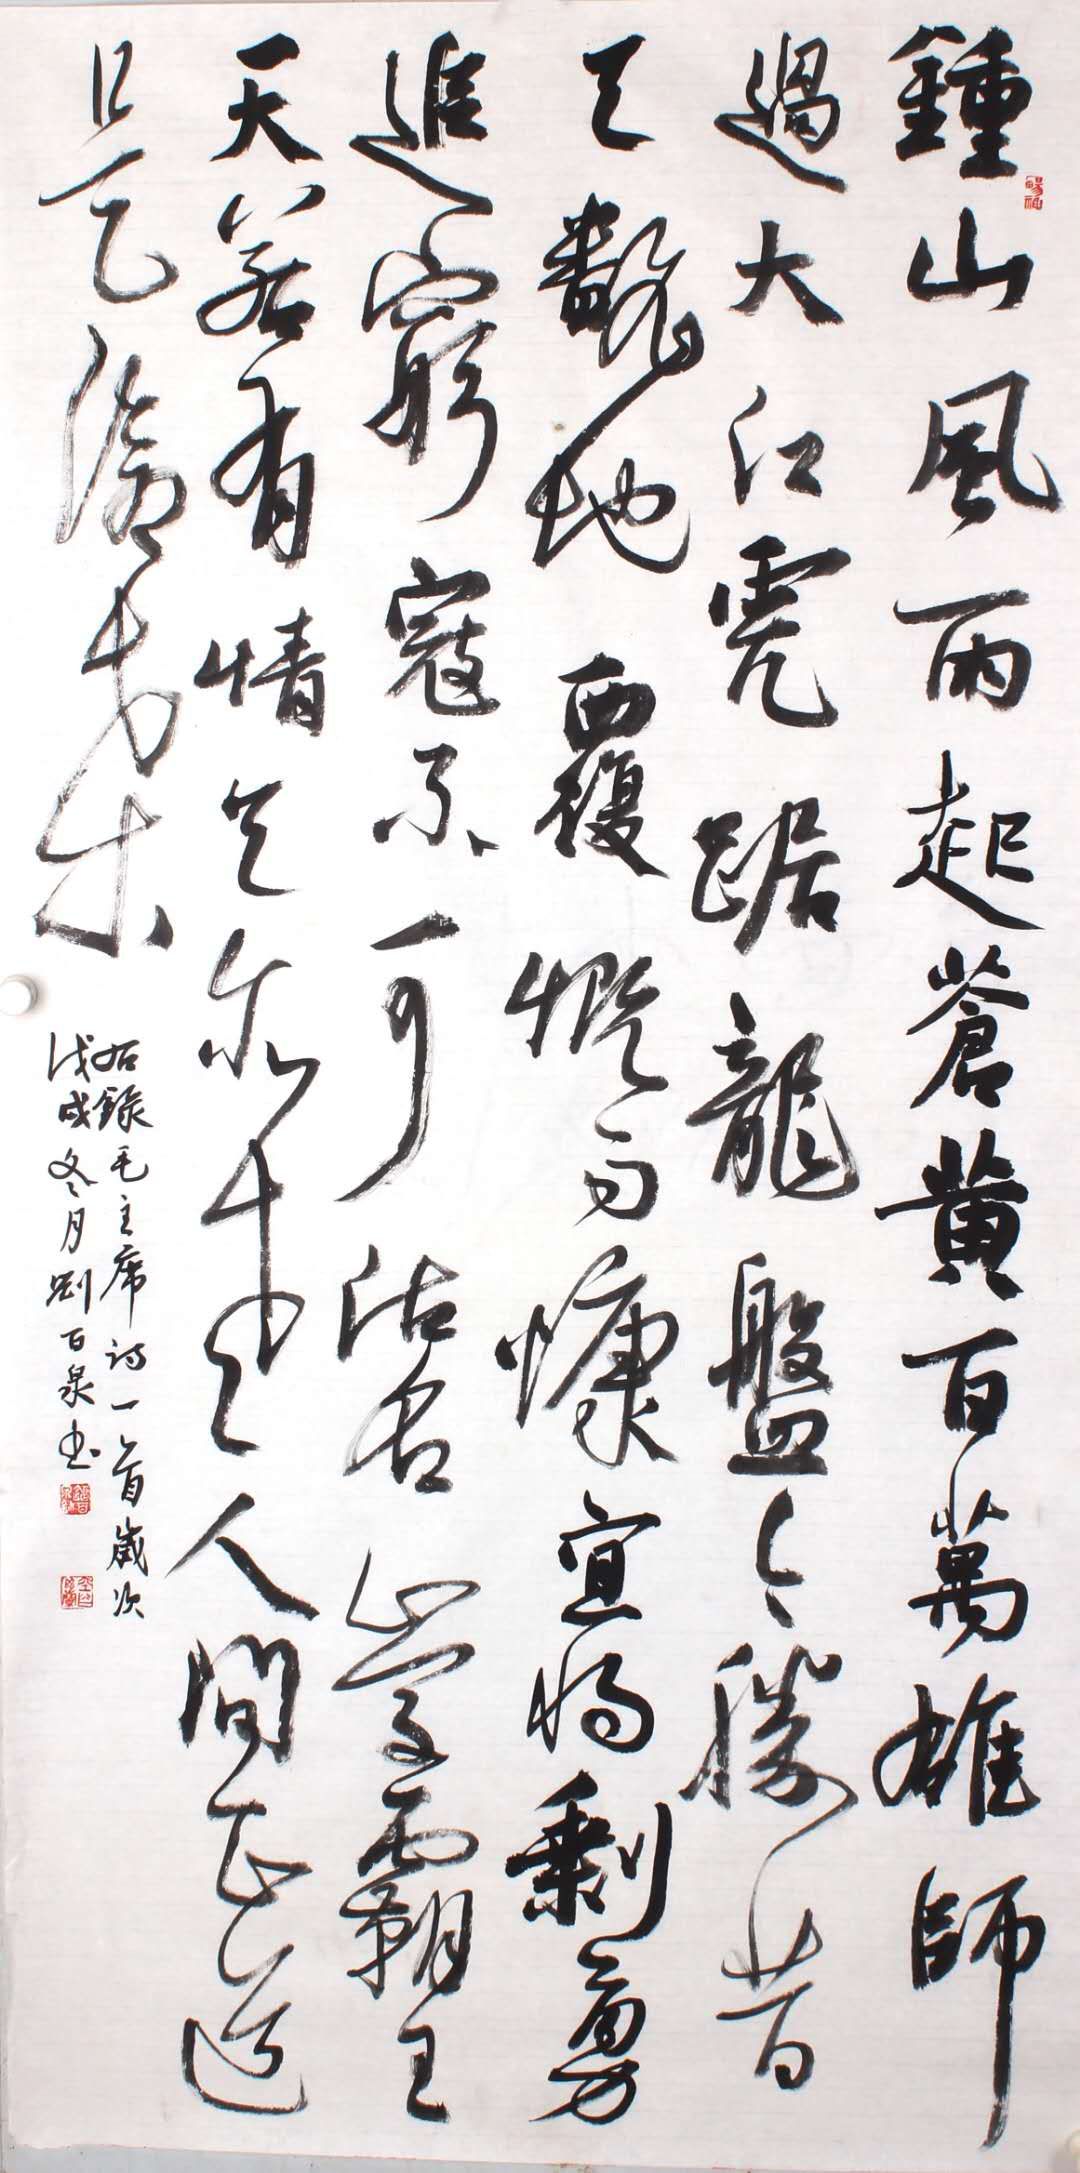 鍾山風雨起蒼黃百萬雄師
過大江虎踞龍盤今勝昔
天翻地覆慨而慷宜將剩勇
追窮寇不可沽名學霸王
天若有情天亦老人間正道
是滄桑
右錄毛主席詩一首歲次
戊戌冬月劉百泉书